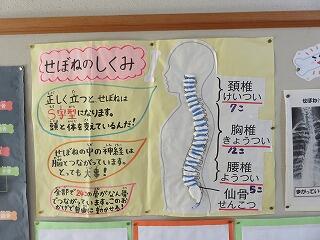 せぼねのしくみ
正しく立つと、せぼねは
S字型になります。
頭と体を支えているんだ!
せぼねの中の神経は
脳とつながっています。
とっても大事!
全部で24この骨がなん骨
でつながっています。このお
かげで自由に動かせる!
頚椎
けいつい
7こ
胸椎
きょうつい
12こ
腰椎
ようつい
5こ
仙骨
せんこつ